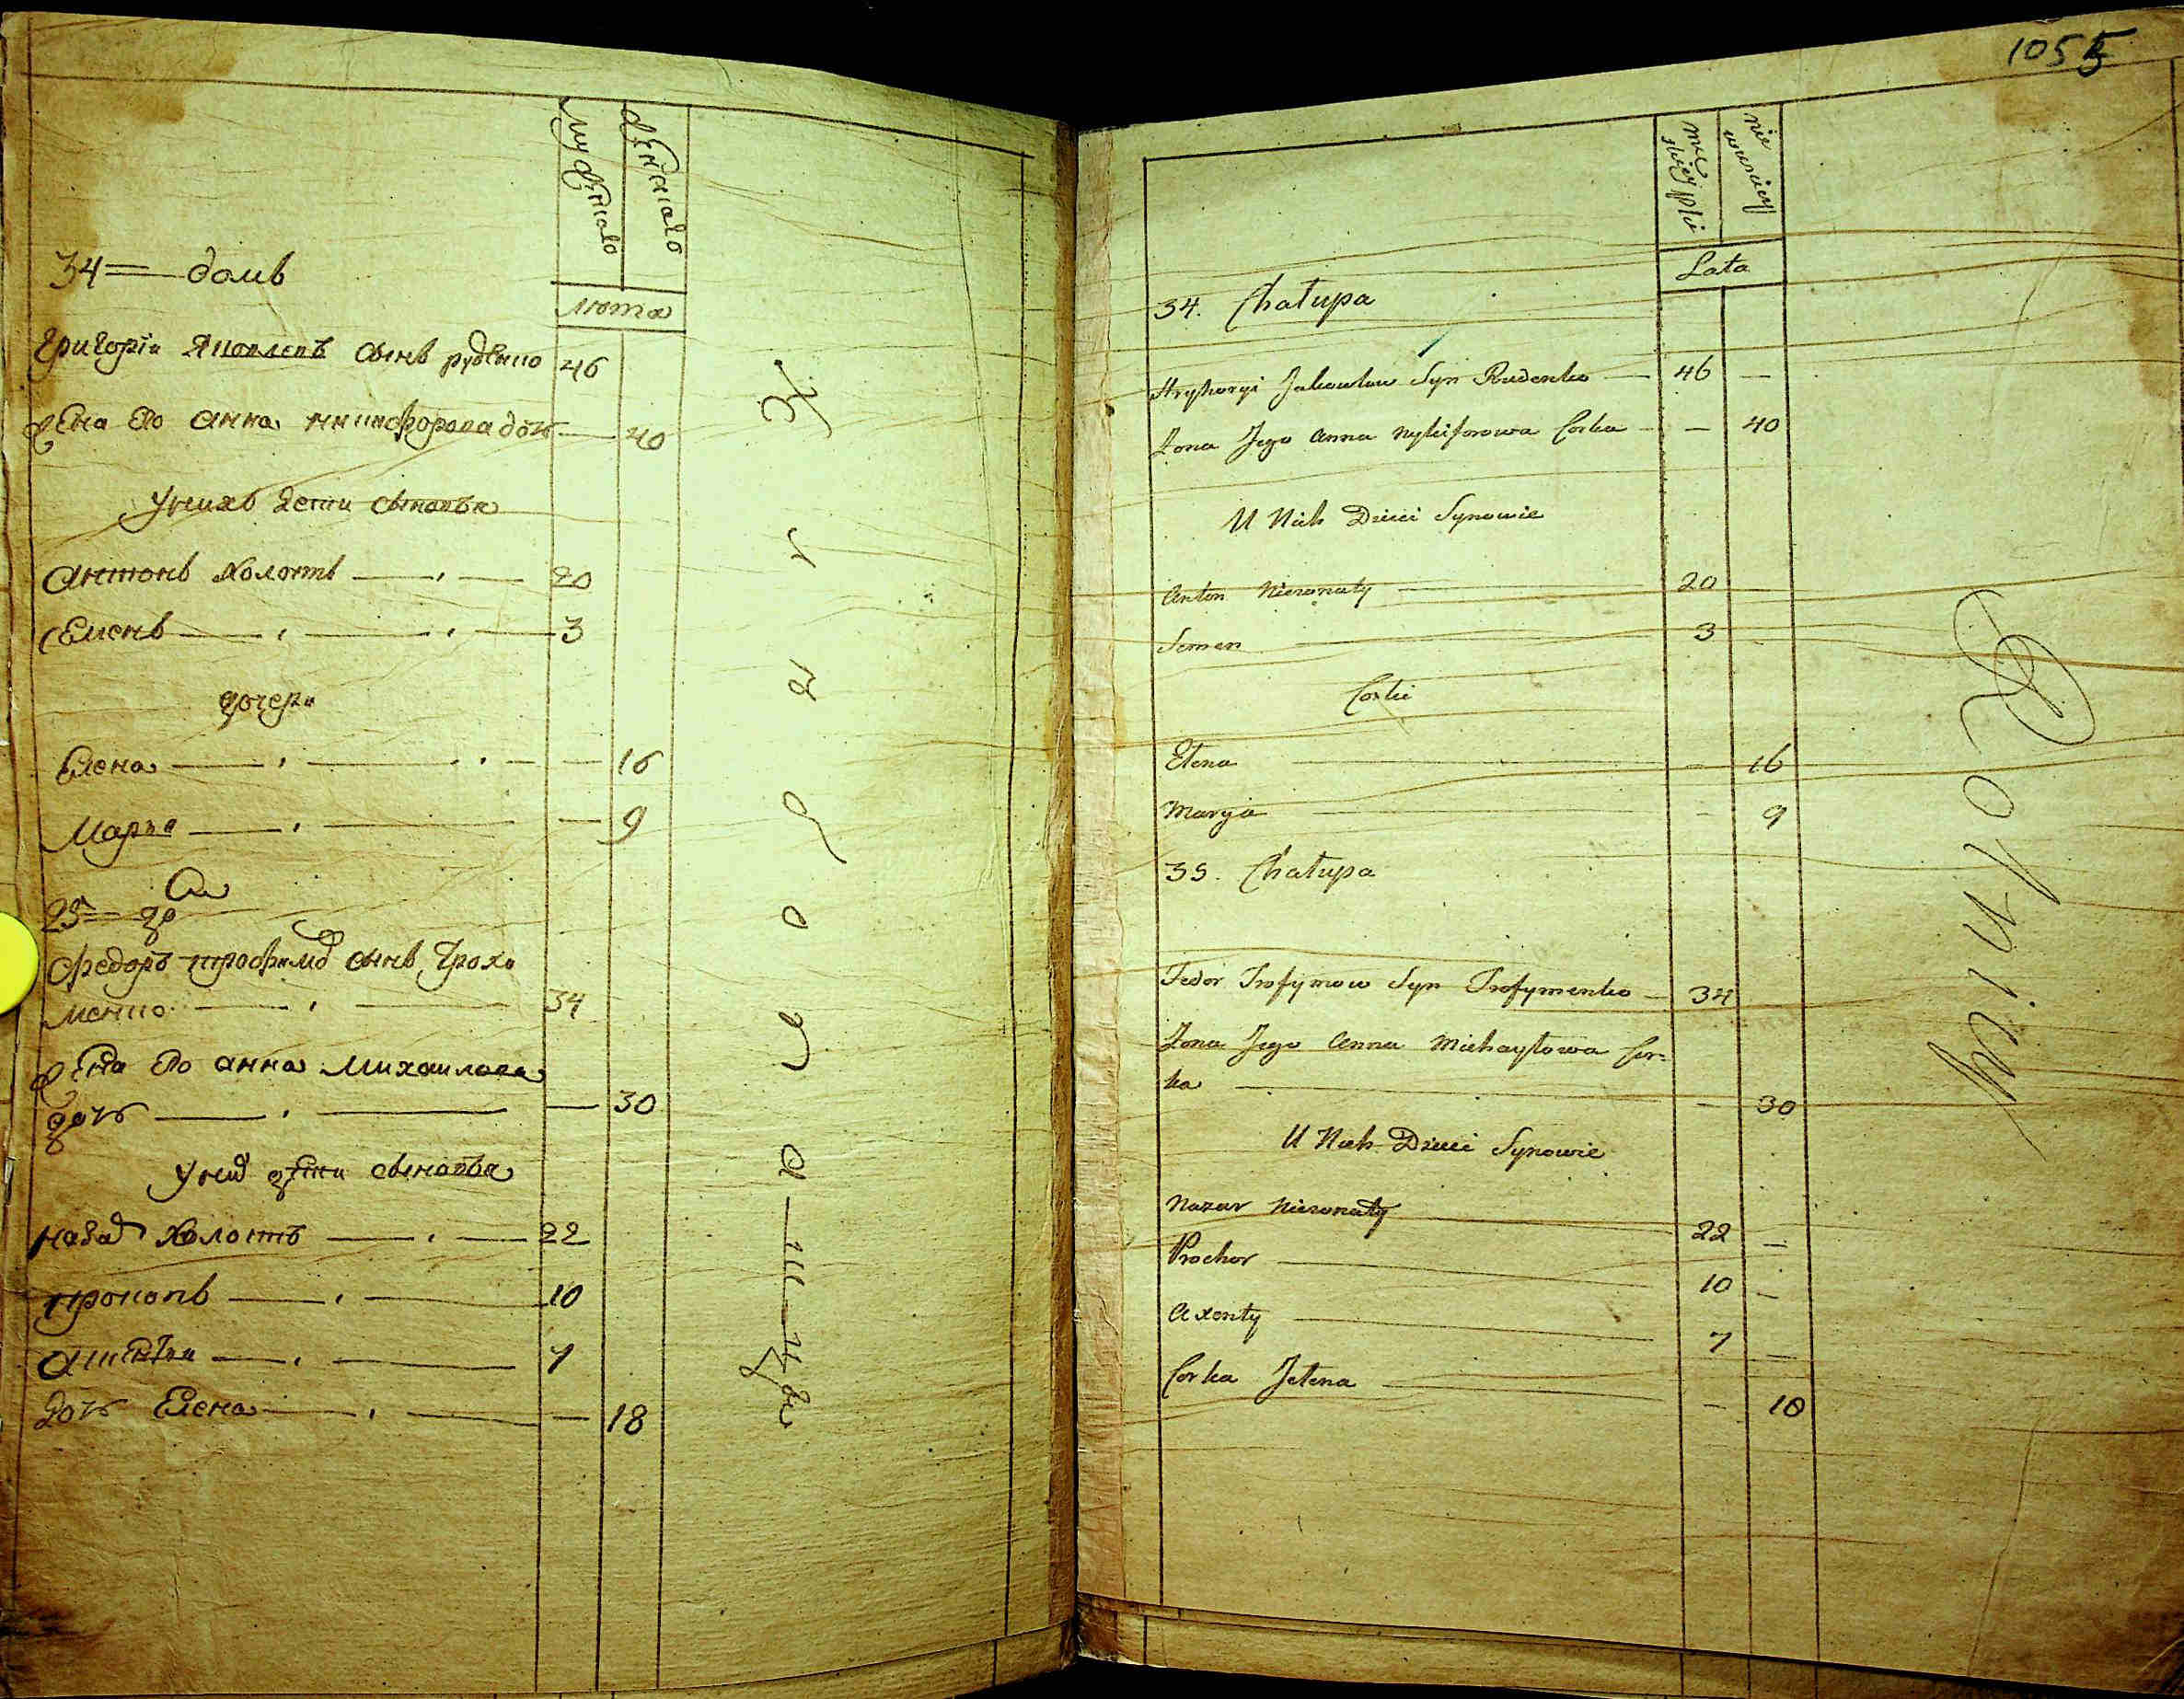 мужеска
женска
лѣта
34 = домъ
Григорiй Яковлевъ сынъ руденко 46
жена его анна никифорова дочь — 40
У нихъ дети сыновья
антонъ Холостъ — 20
Семенъ — 3
дочери
Елена — 16
Марья — 9
федоръ трофимо сынъ
менко — 34
жена его анна Михаилова
дочь — 30
У них дѣти сыновья
назар Холостъ — 22
прокопъ — 10
7
дочь Елена — 18
1055
męskiej płci
niewieściey
Lata
34. Chałupa
Hryhoryi Jakowlow Syn Rudenko — 46 —
Żona Jego Anna Nykiforowa Corka — — 40
U Nich Dzieci Synowie
Anton Nieżonaty — 20
Semen — 3
Corki
Elena — 16
Marya — 9
35. Chałupa
Fedor Trofymow Syn Trofymenko — 34
Żona Jego Anna Michayłowa Cor=
ka — 30
U Nich Dzieci Synowie
Nazar Nieżonaty 22 —
Prochor — 10 —
Axenty — 7 —
Corka Jelena — — 18
Rolnicy